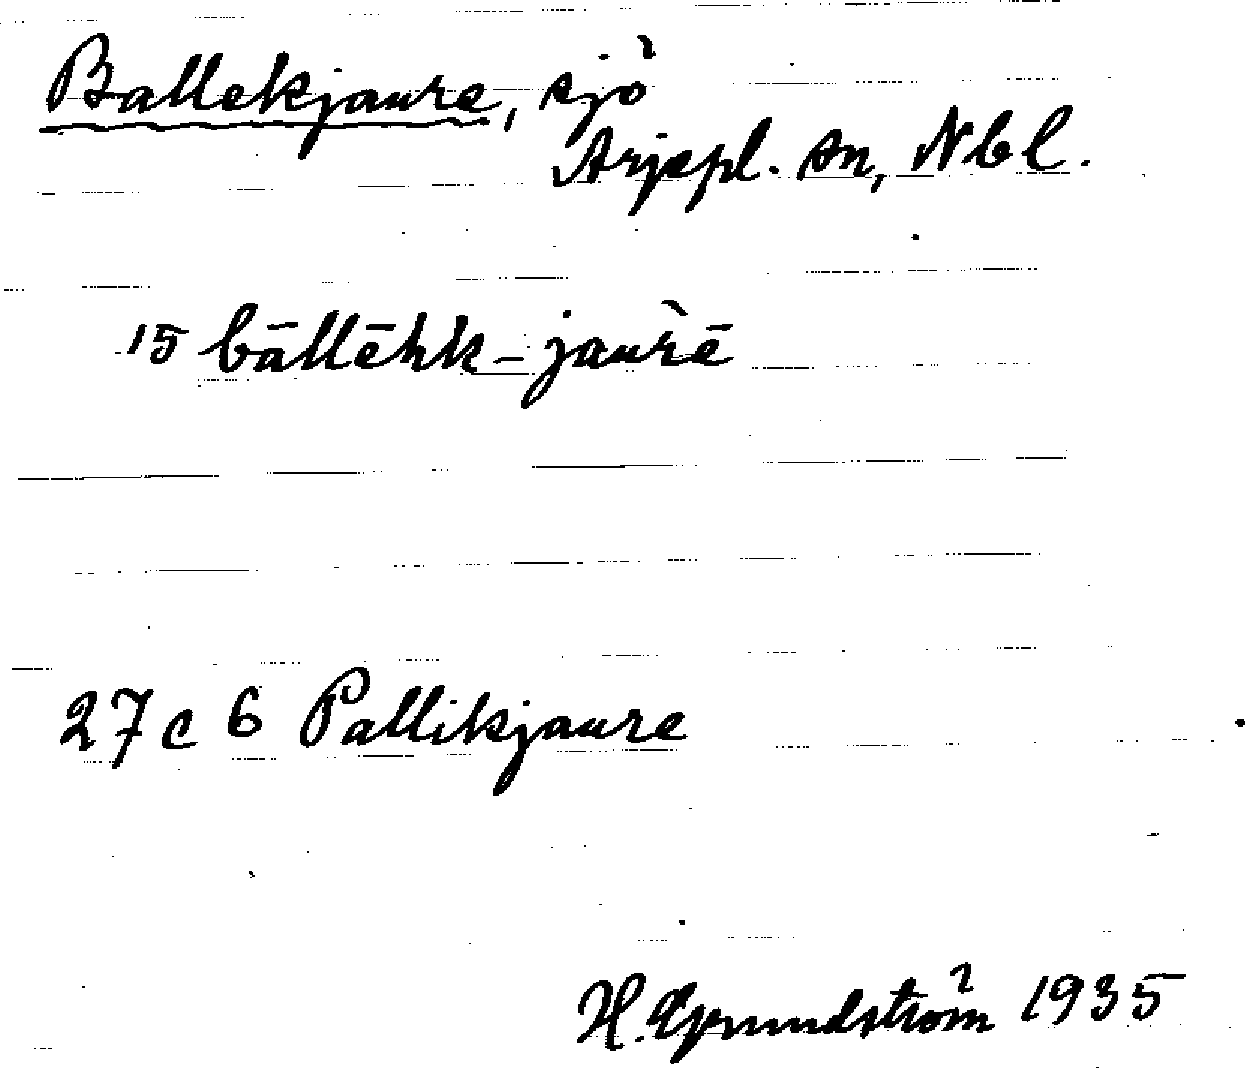 Ballekjaure, sjö
Arjepl. sn, Nbl.
15 bāllēhk-jau̇̀rē
27 c 6 Pallikjaure
H. Grundström 1935